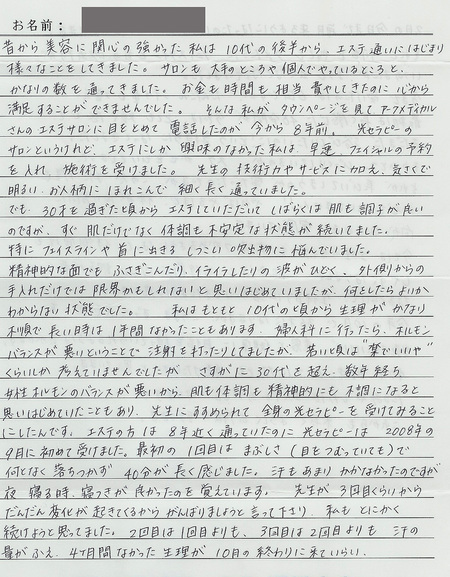 お名前：
昔から美容に関心の強かった私は10代の後半から、エステ通いにはじまり
様々なことをしてきました。サロンも大手のところや個人でやっているところと、
かなりの数を通ってきました。お金も時間も相当費やしてきたのに心から
満足することができませんでした。そんな私がタウンページを見てアークメディカル
さんのエステサロンに目をとめて電話したのが今から8年前。光セラピーの
サロンというけれど、エステにしか興味のなかった私は、早速、フェイシャルの予約
を入れ、施術を受けました。先生の技術力やサービスに加え、気さくで
明るいお人柄にほれこんで細く長く通っていました。
でも、30才を過ぎた頃からエステしていただいてしばらくは肌も調子が良い
のですが、すぐ肌だけでなく体調も不安定な状態が続いてました。
特にフェイスラインや首に出きるしつこい吹出物に悩んでいました。
精神的な面でもふさぎこんだり、イライラしたりの波がひどく、外側からの
手入れだけでは限界かもしれないと思いはじめていましたが、何をしたらよいか
わからない状態でした。私はもともと10代の頃から生理がかなり
不順で長い時は1年間なかったこともあります。婦人科に行ったら、ホルモン
バランスが悪いということで注射を打ったりしてましたが、若い頃は"楽でいいや"
くらいしか考えていませんでしたが、さすがに30代を超え、数年経ち
女性ホルモンのバランスが悪いから、肌も体調も精神的にも不調になると
思いはじめていたこともあり、先生にすすめられて全身の光セラピーを受けてみること
にしたんです。エステの方は8年近く通っていたのに光セラピーは2008年の
9月に初めて受けました。最初の1回目はまぶしさ(目をつむっていても)で
何となく落ちつかず40分が長く感じました。汗もあまりかかなかったのですが
夜寝る時、寝つきが良かったのを覚えています。先生が3回目くらいから
だんだん変化が起きてくるからがんばりましょうと言って下さり、私もとにかく
続けようと思ってました。2回目は1回目よりも、3回目は2回目よりも汗の
量がふえ、4ヶ月間なかった生理が10月の終わりに来ていらい、